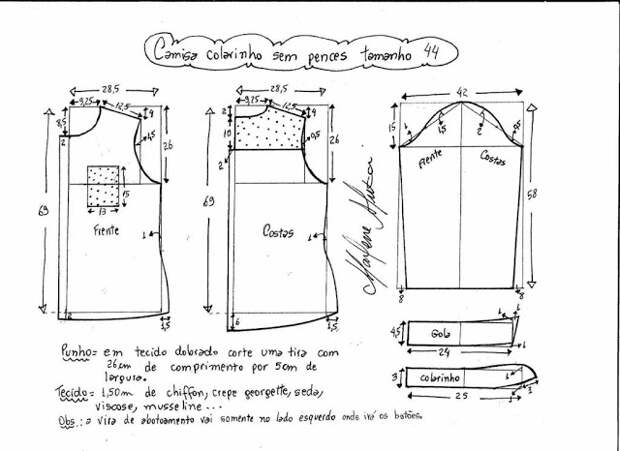 Camisa colarinho sem pences tamanho 44
28,5
9,25
12,5
4
8,5
2
4,5
26
15
13
69
Frente
1
1,5
28,5
9,25
12,5
4
2
10
0,5
26
2
69
Costas
1
6
1,5
42
15
1,5
2
Frente
Costas
58
8
8
Marlene Mukai
4,5
Gola
1
1
24
3
colarinho
1
1
3
25
Punho = em tecido dobrado corte uma tira com
26cm de comprimento por 5cm de
largura.
Tecido = 1,50m de chiffon, crepe georgette, seda,
viscose, musseline...
Obs.: a vira de abotoamento vai somente no lado esquerdo onde irá os botões.